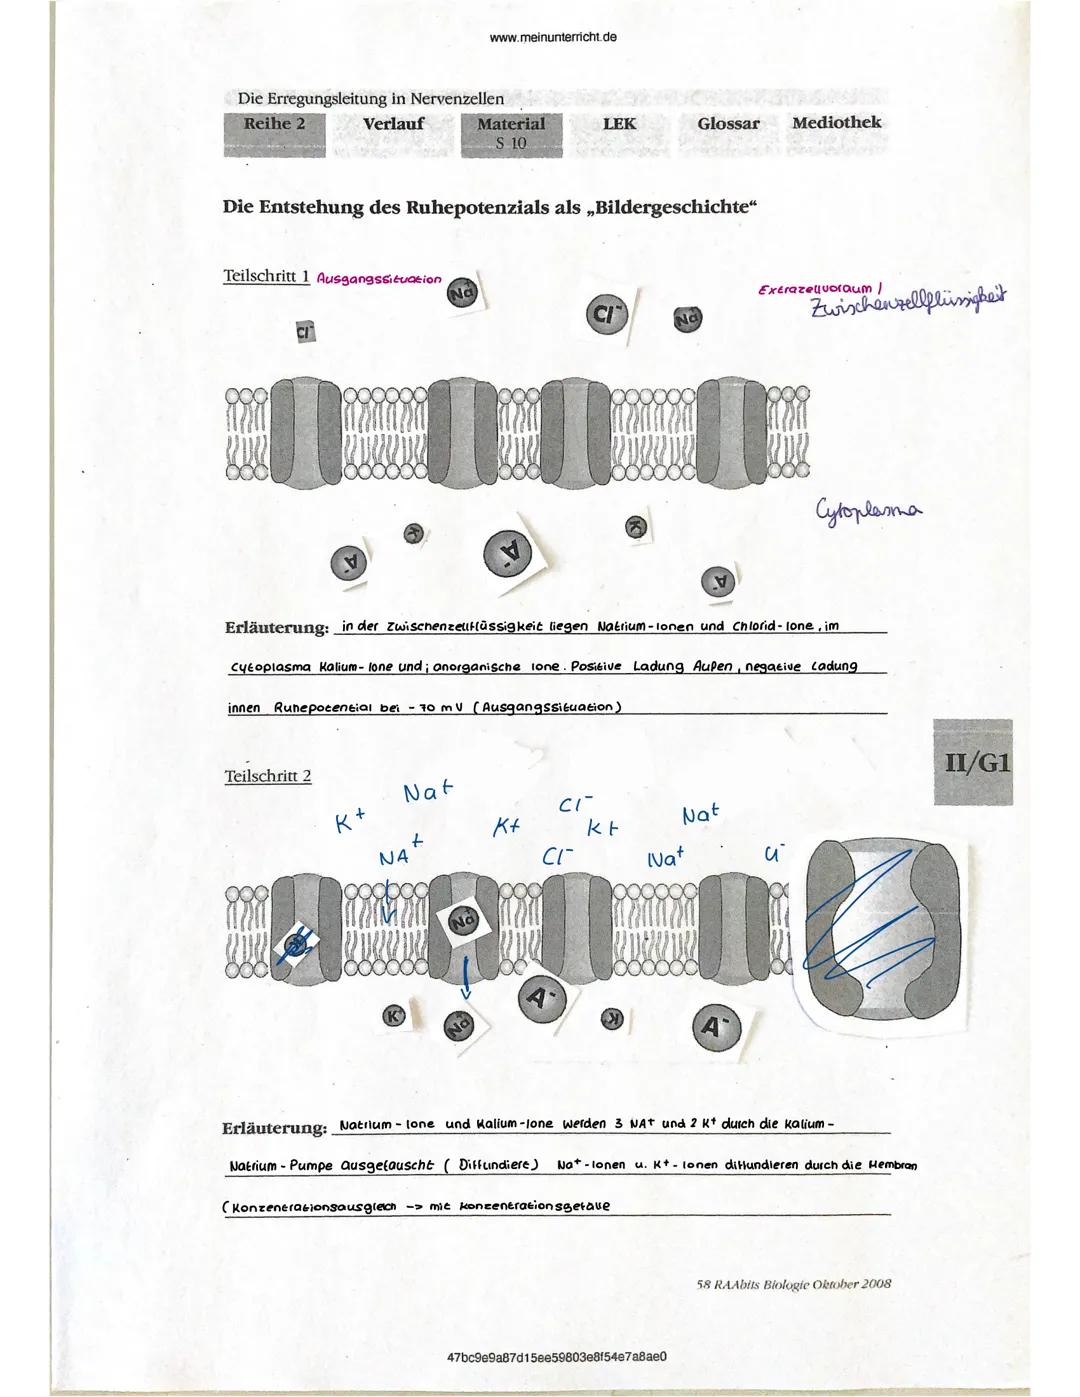 www.meinunterricht.de
Die Erregungsleitung in Nervenzellen
Reihe 2 Verlauf Material S 10 LEK Glossar Mediothek
Die Entstehung des Ruhepotenzials als „Bildergeschichte“
Teilschritt 1 Ausgangssituation
Extrazellvoraum /
Zwischenzellflüssigkeit
Na+ Cl- Na+
Cl-
Cytoplasma
K+ K+
A- A- A-
Erläuterung: in der Zwischenzellflüssigkeit liegen Natrium-Ionen und Chlorid-Ione, im
Cytoplasma Kalium-Ione und ; anorganische Ione. Positive Ladung Außen, negative Ladung
innen Ruhepotential bei -70 mV (Ausgangssituation)
II/G1
Teilschritt 2
Na+ Cl- Na+
K+ K+ K+
NA+ Cl- Na+ Cl-
Na+
K+ Na+ A- K A-
Erläuterung: Natrium-Ione und Kalium-Ione werden 3 NA+ und 2 K+ durch die Kalium-
Natrium-Pumpe Ausgetauscht (Diffundiere) Na+-Ionen u. K+-Ionen diffundieren durch die Membran
(Konzentrationsausgleich -> mit Konzentrationsgefälle
58 RAAbits Biologie Oktober 2008
47bc9e9a87d15ee59803e8f54e7a8ae0